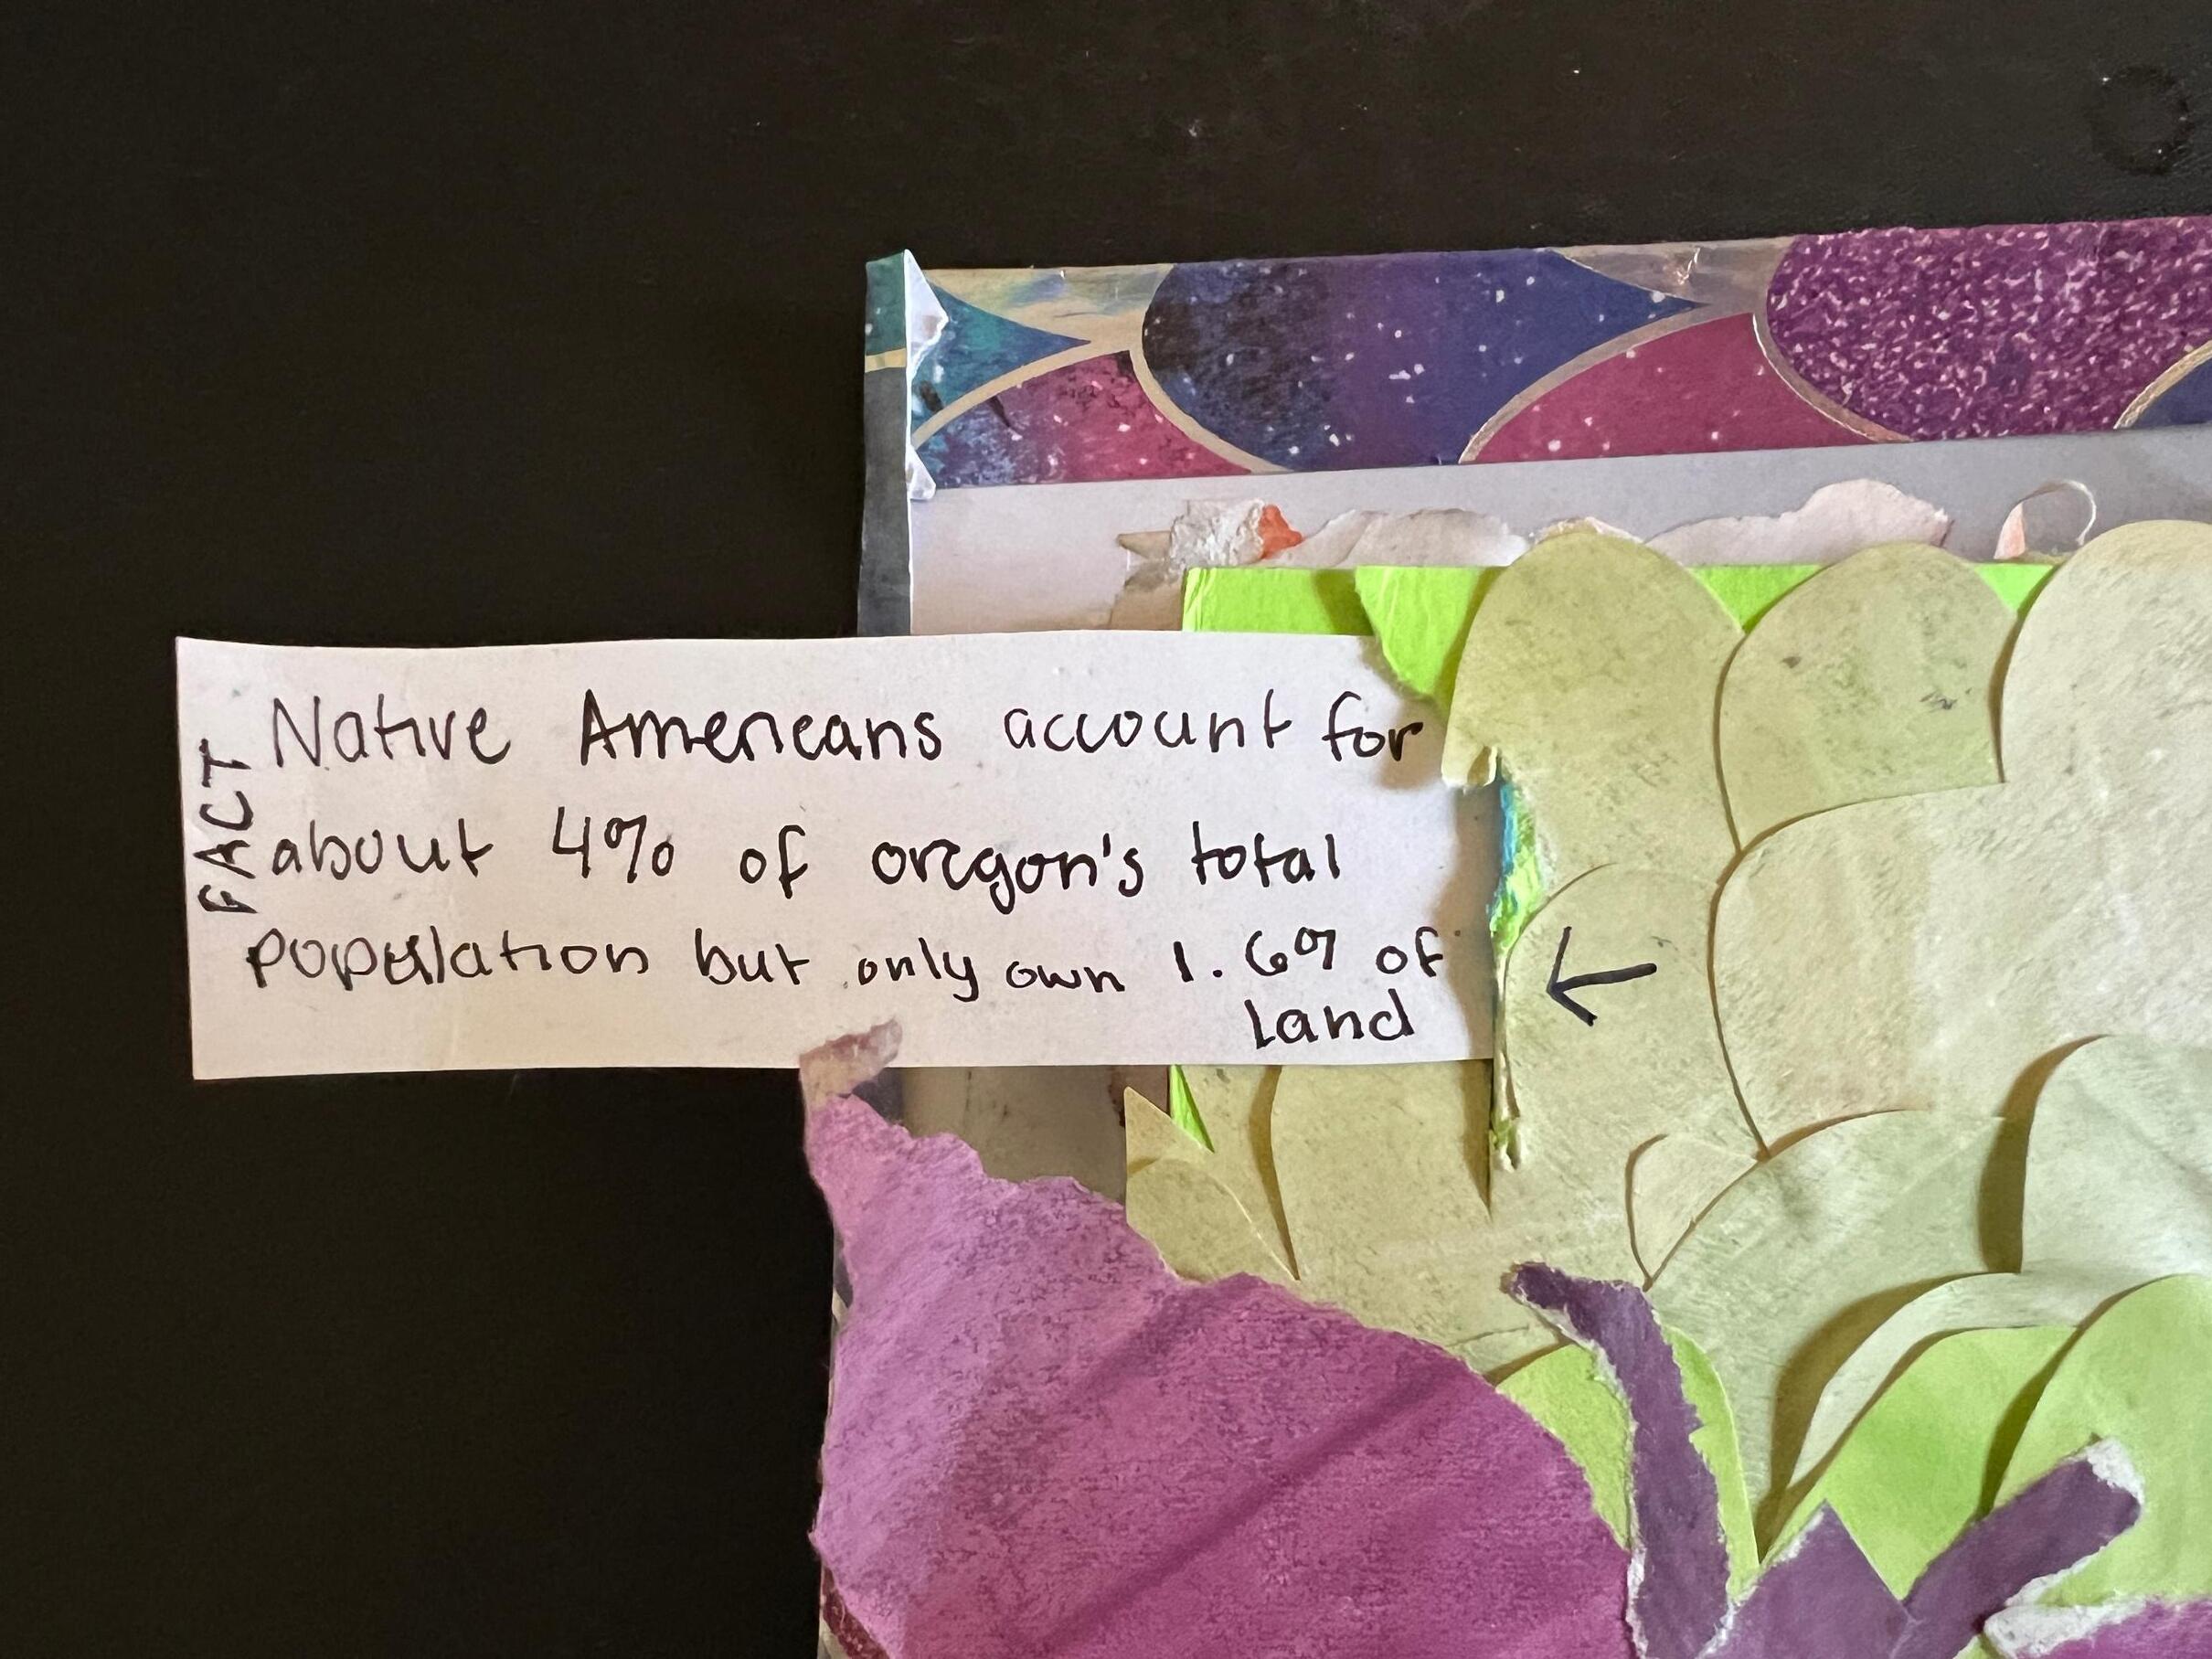 FACT
Native Americans account for
about 4% of oregon's total
population but only own 1.6% of
land